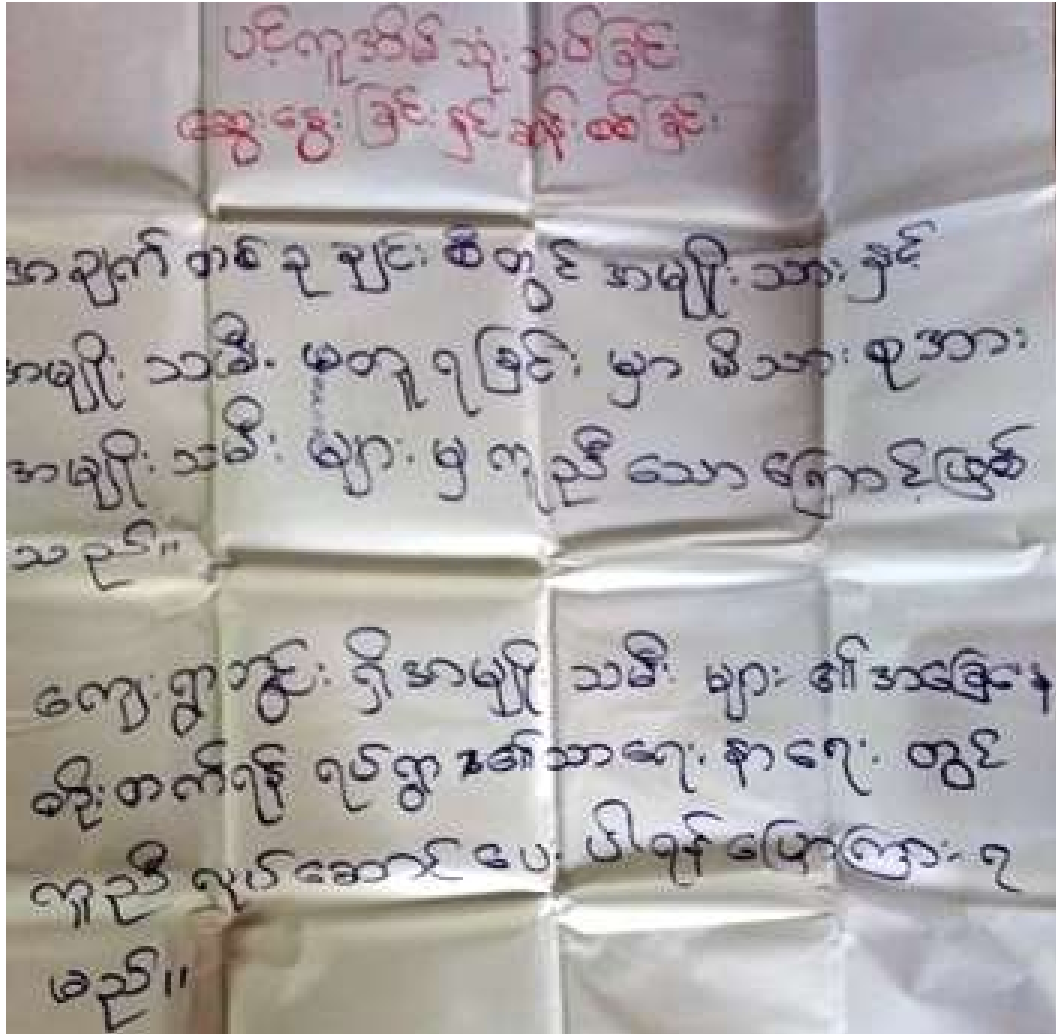 ပင့်ကူအိမ်သုံးသပ်ခြင်း
ဆွေးနွေးခြင်းနှင့်ဆန်းစစ်ခြင်း
အချက်တစ်ခုချင်းစီတွင် အမျိုးသားနှင့်
အမျိုးသမီး မတူရခြင်းမှာ မိသားစုအား
အမျိုးသမီးများမှ ကူညီသောကြောင့်ဖြစ်
သည်။
ကျေးရွာတွင်းရှိအမျိုးသမီးများ၏အခြေနေ
တိုးတက်ရန် ရပ်ရွာ၏သာရေးနာရေးတွင်
ကူညီလုပ်ဆောင်ပေးပါရန်ပြောကြားရ
မည်။